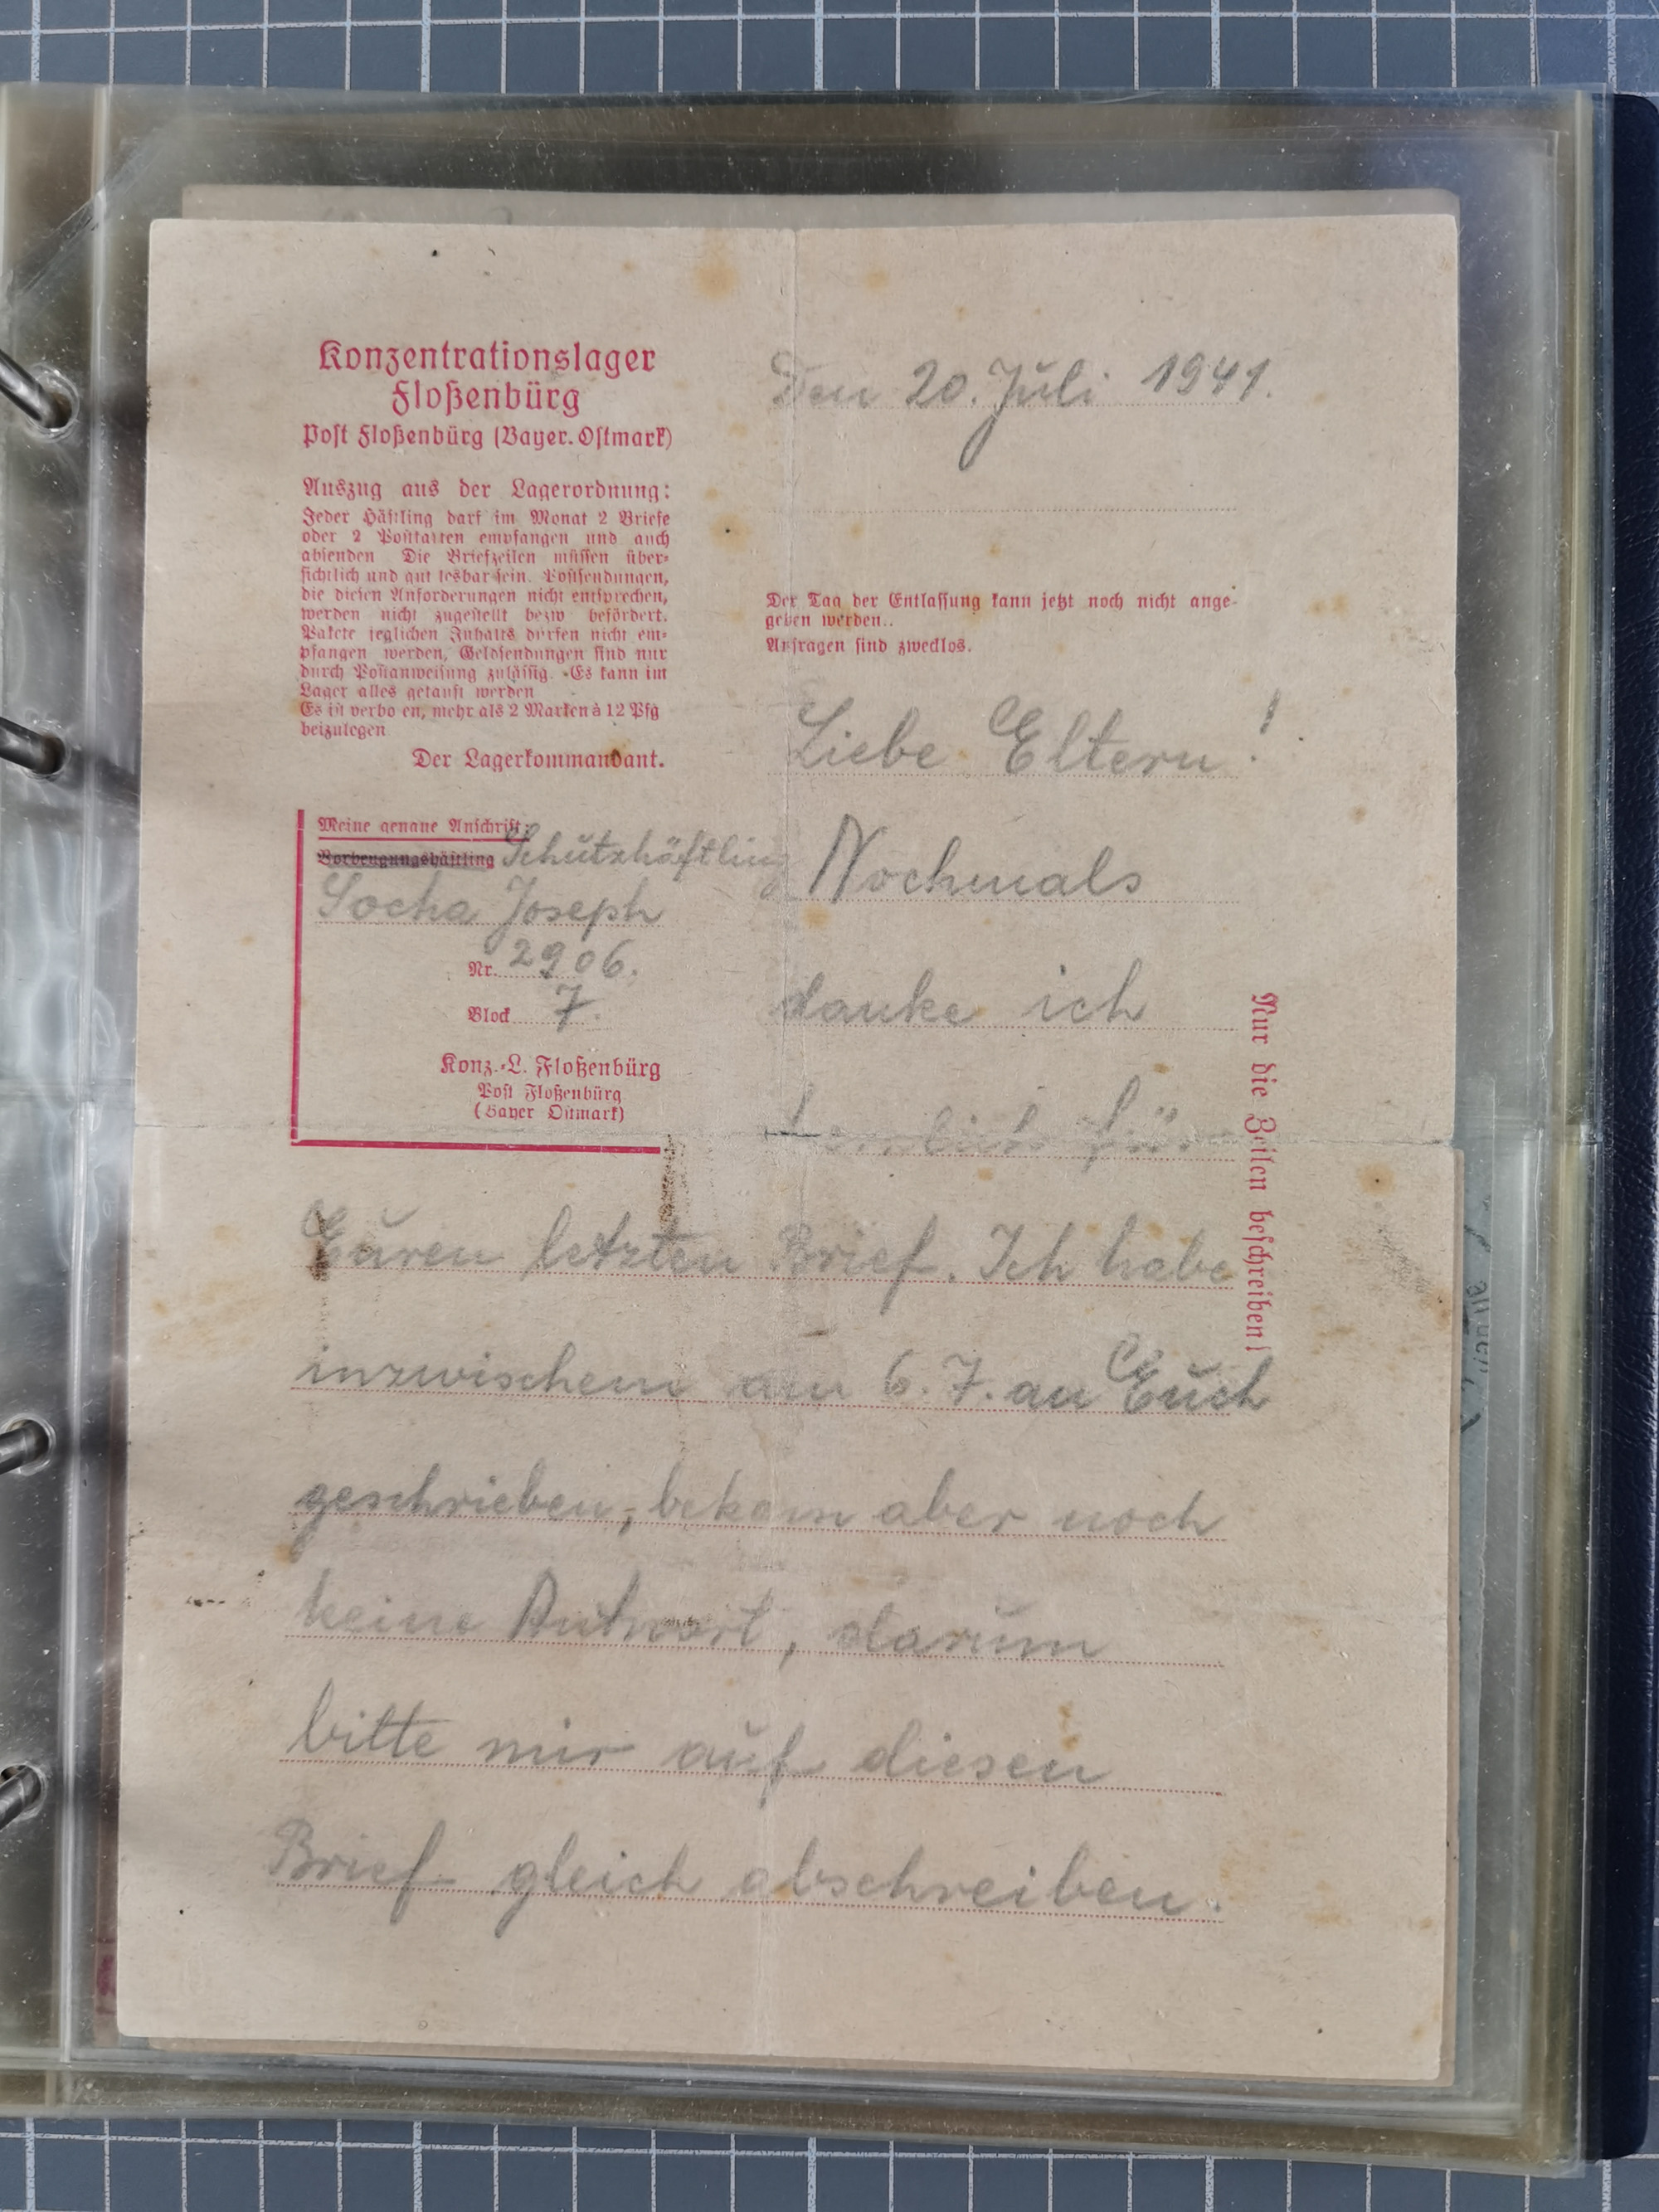 Konzentrationslager
Floßenbürg
Post Floßenbürg (Bayer. Ostmark)
Auszug aus der Lagerordnung:
Jeder Häftling darf im Monat 2 Briefe
oder 2 Postkarten empfangen und auch
absenden Die Briefzeilen müssen über-
sichtlich und gut lesbar sein. Postsendungen,
die diesen Anforderungen nicht entsprechen,
werden nicht zugestellt bezw befördert.
Pakete jeglichen Inhalts dürfen nicht em-
pfangen werden, Geldsendungen sind nur
durch Postanweisung zulässig. Es kann im
Lager alles gekauft werden
Es ist verbo en, mehr als 2 Marken à 12 Pfg
beizulegen
Der Lagerkommandant.
Meine genaue Anschrift:
Vorbeugungshäftling Schutzhäftling
Socha Joseph
Nr. 2906.
Block 7.
Konz.-L. Floßenbürg
Post Floßenbürg
(Bayer Ostmark)
Den 20. Juli 1941.
Der Tag der Entlassung kann jetzt noch nicht ange-
geben werden..
Anfragen sind zwecklos.
Liebe Eltern!
Nochmals
danke ich
für
Euren letzten Brief. Ich habe
inzwischen am 6. 7. an Euch
geschrieben, bekam aber noch
keine Antwort, darum
bitte mir auf diesen
Brief gleich abschreiben.
Nur die Zeilen beschreiben!